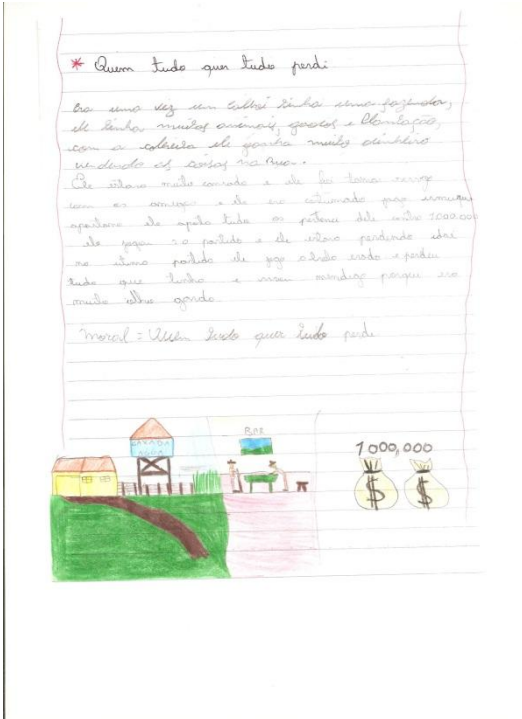 * Quem tudo quer tudo perdi
Era uma vez um tinha uma fazenda,
ele tinha muitos animais, gados e Plantação,
com a colheita ele ganha muito dinheiro
vendendo as coisas na Rua.
Ele estava muito cansado e ele foi toma serveja
com os amigos e ele era
ele tudo os pertence dele entre 1000.000
ele jogou 20 partida e ele estava perdendo
no ultimo partida ele joga e perdeu
tudo que tinha e mendigo porque era
muito olho gordo.
Moral = Quem tudo quer tudo perdi
CAXADA
AGUA
BAR
1000,000
$ $